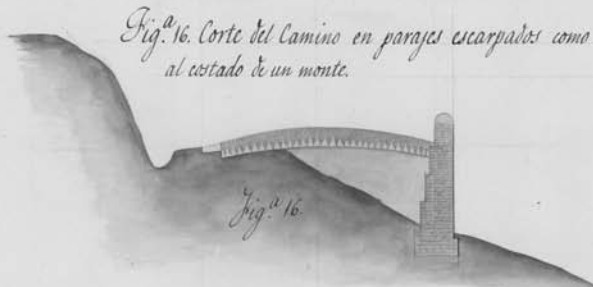 Fig.ª 16. Corte del Camino en parajes escarpados como
al costado de un monte.
Fig.ª 16.